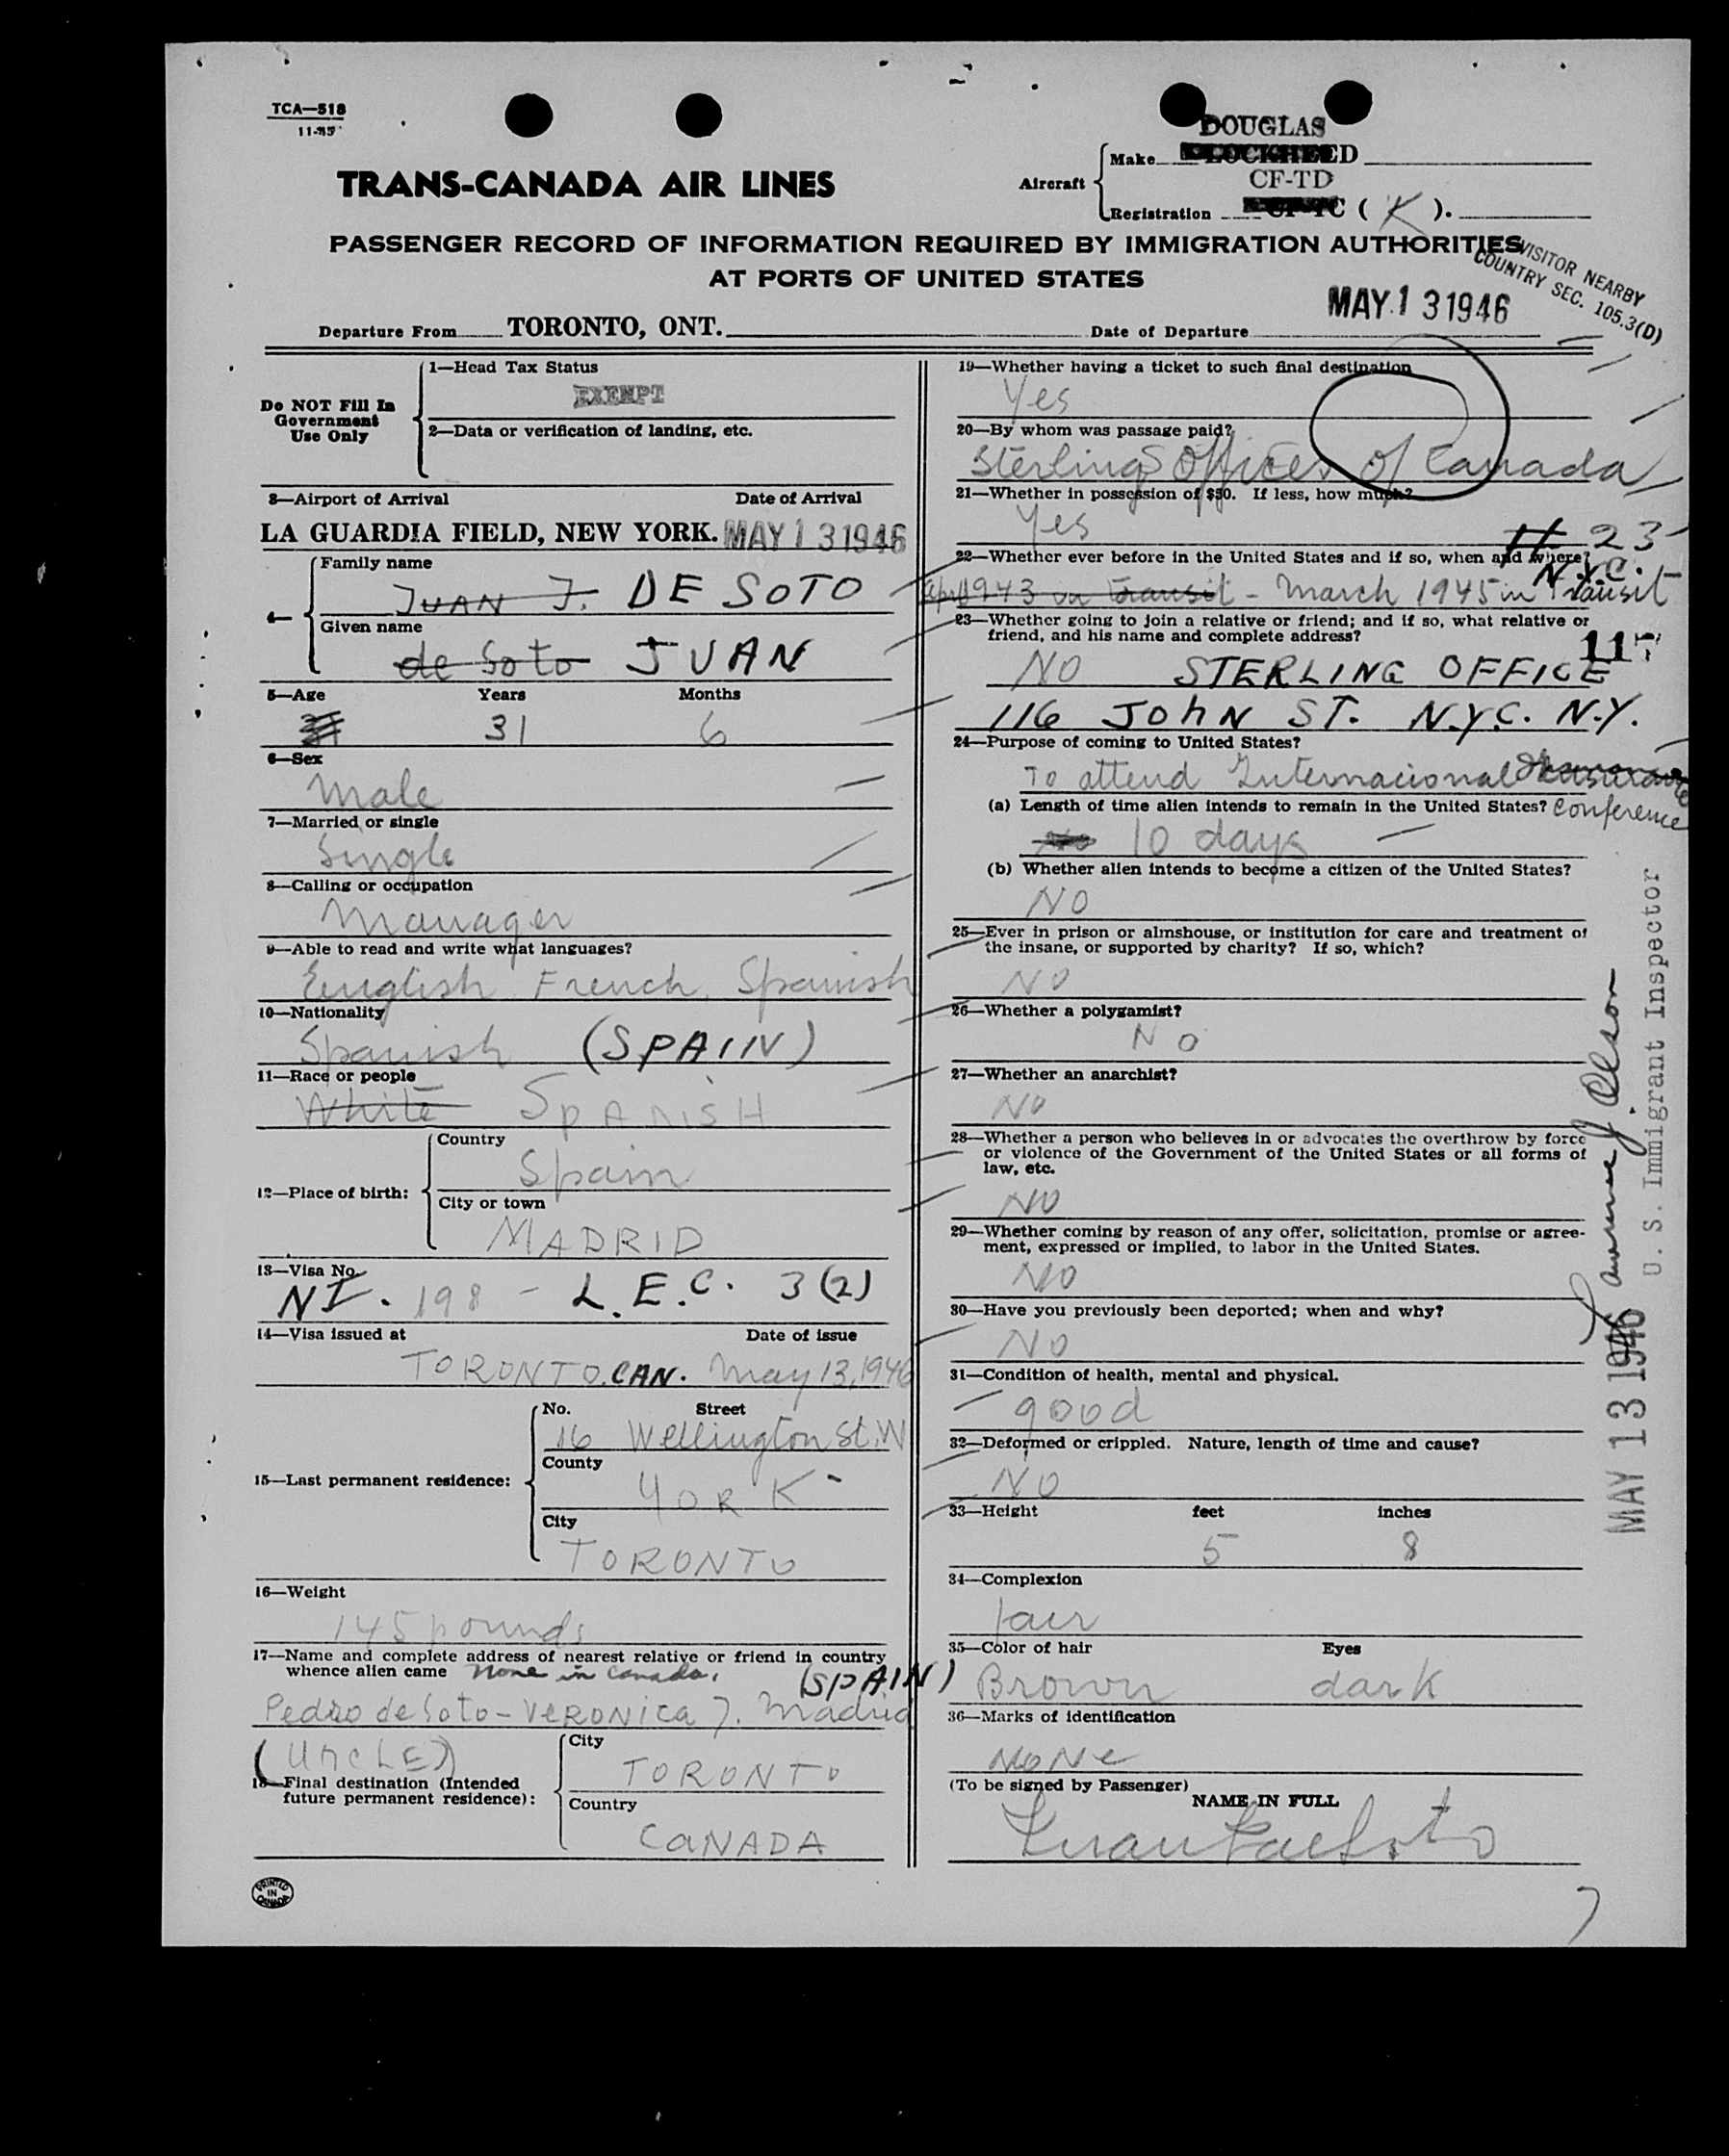 TCA—518
11-45
DOUGLAS
Aircraft Make LOCKHEED
CF-TD
Registration CF-TC ( K ).
TRANS-CANADA AIR LINES
PASSENGER RECORD OF INFORMATION REQUIRED BY IMMIGRATION AUTHORITIES
AT PORTS OF UNITED STATES
VISITOR NEARBY
COUNTRY SEC. 105.3(D)
Departure From TORONTO, ONT. Date of Departure MAY 13 1946
Do NOT Fill In
Government
Use Only
1—Head Tax Status
EXEMPT
2—Data or verification of landing, etc.
3—Airport of Arrival Date of Arrival
LA GUARDIA FIELD, NEW YORK. MAY 13 1946
4—
Family name
JUAN J. DE SOTO
Given name
de Soto JUAN
5—Age Years Months
31 6
6—Sex
Male
7—Married or single
Single
8—Calling or occupation
Manager
9—Able to read and write what languages?
English French, Spanish
10—Nationality
Spanish (SPAIN)
11—Race or people
White SPANISH
12—Place of birth:
Country
Spain
City or town
MADRID
13—Visa No.
NI. 198 - L.E.C. 3(2)
14—Visa issued at Date of issue
TORONTO. CAN. May 13, 1946
15—Last permanent residence:
No. Street
16 Wellington St. W
County
YORK
City
TORONTO
16—Weight
145 pounds
17—Name and complete address of nearest relative or friend in country
whence alien came None in Canada. (SPAIN)
Pedro de Soto - VERONICA 7. Madrid
(UNCLE)
18—Final destination (Intended
future permanent residence):
City
TORONTO
Country
CANADA
PRINTED
IN
CANADA
19—Whether having a ticket to such final destination
Yes
20—By whom was passage paid?
Sterling Offices of Canada
21—Whether in possession of $50. If less, how much?
Yes
23
22—Whether ever before in the United States and if so, when and where?
N.Y.C.
April 1943 in transit - March 1945 in Transit
23—Whether going to join a relative or friend; and if so, what relative or
friend, and his name and complete address?
117
NO STERLING OFFICE
116 JOHN ST. N.Y.C. N.Y.
24—Purpose of coming to United States?
To attend Internacional Insurance
Conference
(a) Length of time alien intends to remain in the United States?
10 days
(b) Whether alien intends to become a citizen of the United States?
NO
25—Ever in prison or almshouse, or institution for care and treatment of
the insane, or supported by charity? If so, which?
NO
26—Whether a polygamist?
NO
27—Whether an anarchist?
NO
28—Whether a person who believes in or advocates the overthrow by force
or violence of the Government of the United States or all forms of
law, etc.
NO
29—Whether coming by reason of any offer, solicitation, promise or agree-
ment, expressed or implied, to labor in the United States.
NO
30—Have you previously been deported; when and why?
NO
31—Condition of health, mental and physical.
good
32—Deformed or crippled. Nature, length of time and cause?
NO
33—Height feet inches
5 8
34—Complexion
fair
35—Color of hair Eyes
Brown dark
36—Marks of identification
NONE
(To be signed by Passenger)
NAME IN FULL
MAY 13 1946
U. S. Immigrant Inspector